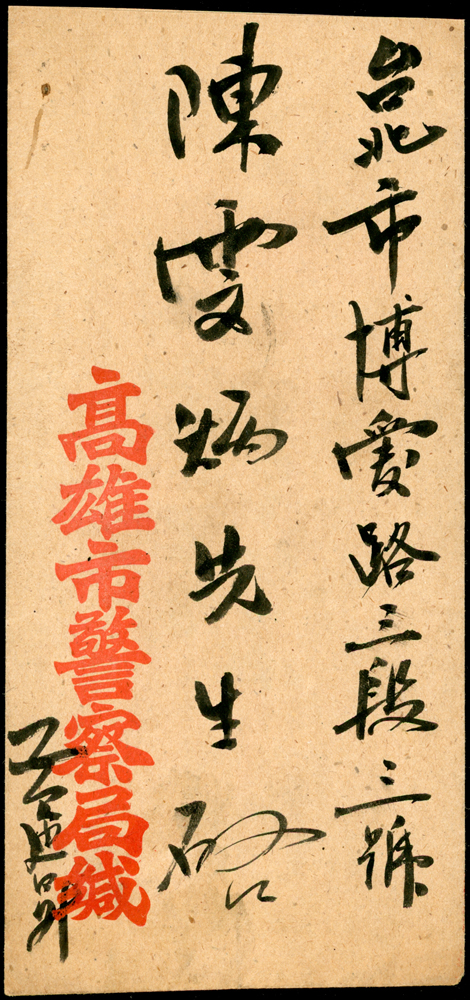 台北市博愛路三段三號
陳雯炳先生啓
高雄市警察局緘